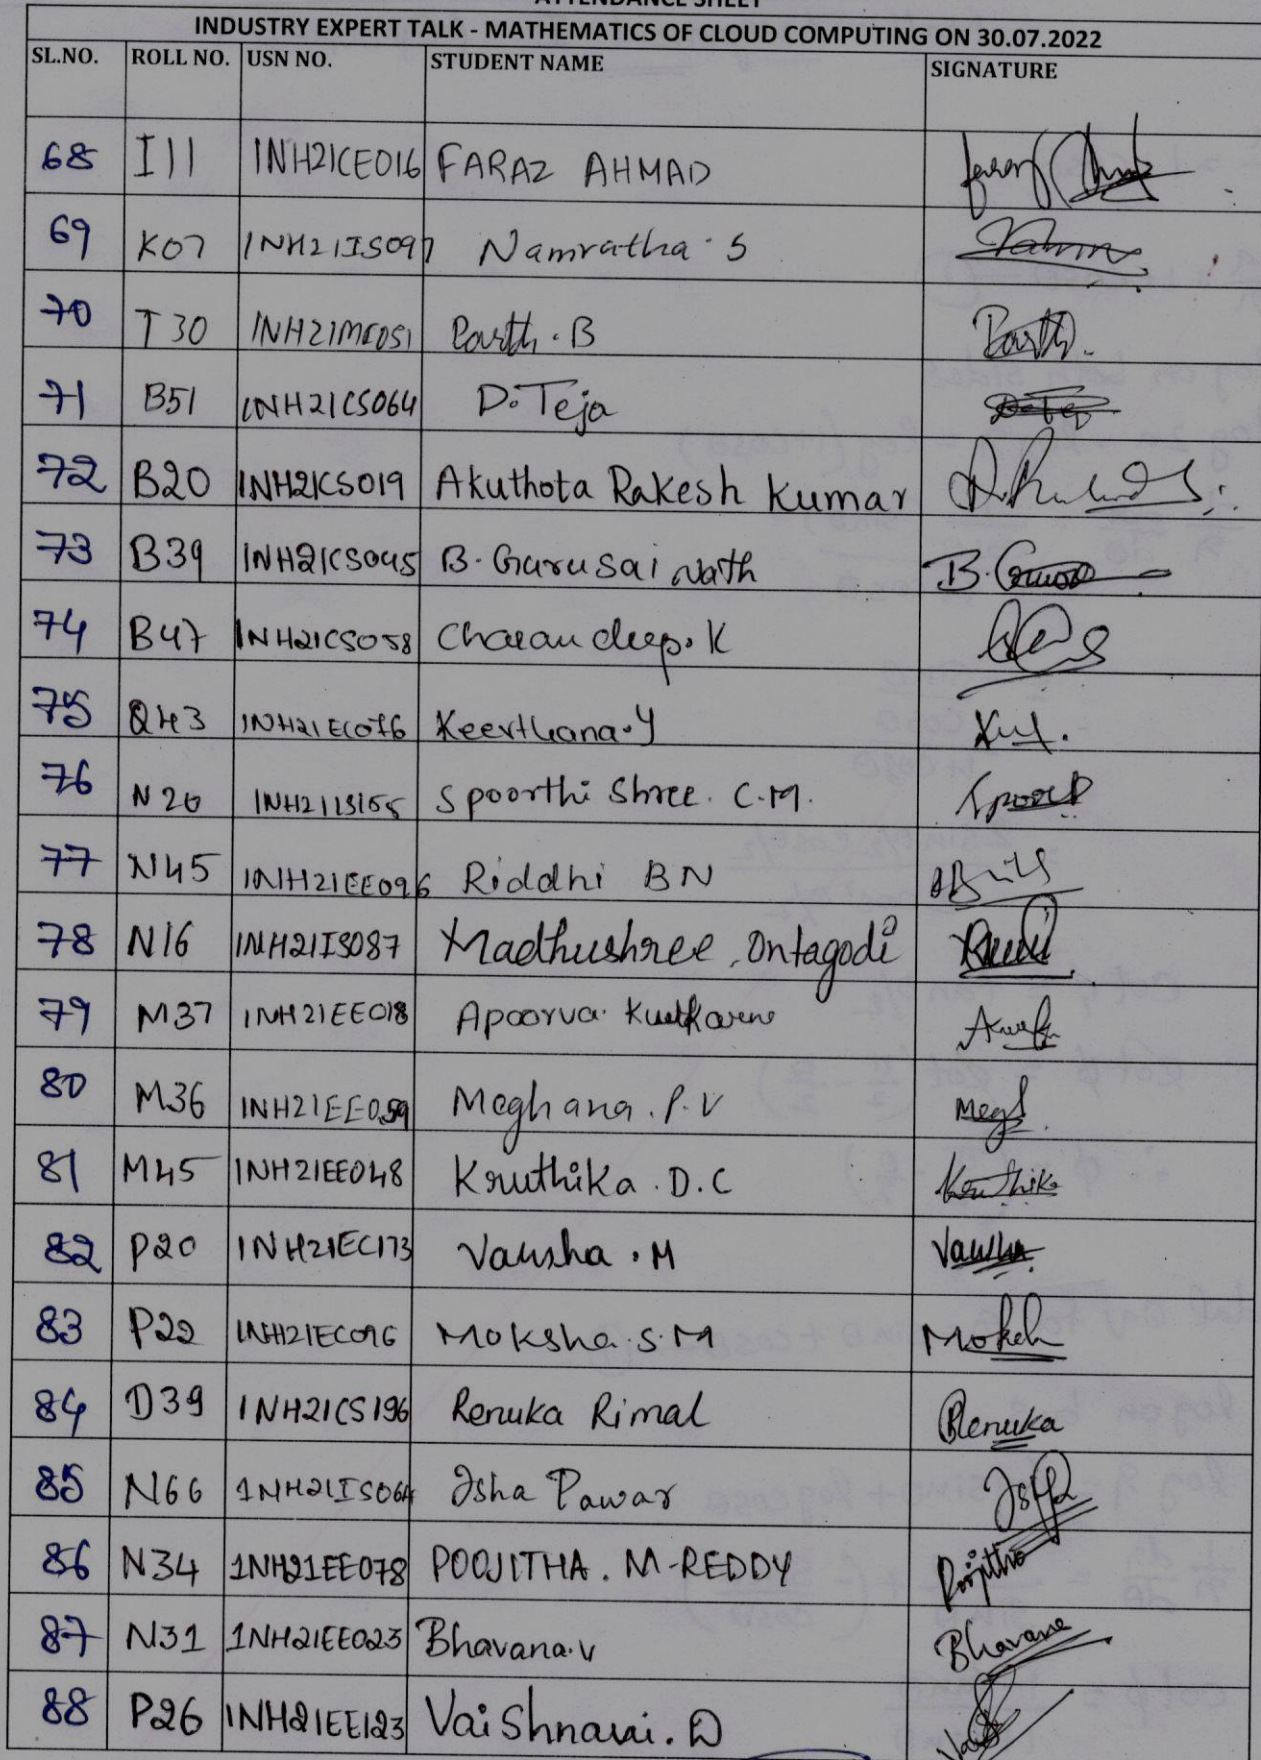 ATTENDANCE SHEET
INDUSTRY EXPERT TALK - MATHEMATICS OF CLOUD COMPUTING ON 30.07.2022
SL.NO. ROLL NO. USN NO. STUDENT NAME SIGNATURE
68 I11 1NH21CE016 FARAZ AHMAD
69 K07 1NH21IS097 Namratha S
70 T30 1NH21ME051 Parth.B Parth.
71 B51 1NH21CS064 D.Teja
72 B20 1NH21CS019 Akuthota Rakesh Kumar
73 B39 1NH21CS045 B.Gurusai Nath
74 B47 1NH21CS058 Charandeep.K
75 Q43 1NH21EC076 Keerthana.Y
76 N26 1NH21IS155 Spoorthi Shree. C.M.
77 N45 1NH21EE096 Riddhi BN
78 N16 1NH21IS087 Madhushree.Ontagodi
79 M37 1NH21EE018 Apoorva
80 M36 1NH21EE059 Meghana.P.V
81 M45 1NH21EE048 Kruthika.D.C Kruthika
82 P20 1NH21EC173 Varsha.M Varsha
83 P22 1NH21EC096 Moksha.S.M Moksh
84 D39 1NH21CS196 Renuka Rimal Renuka
85 N66 1NH21IS064 Isha Pawar
86 N34 1NH21EE078 POOJITHA. M-REDDY Poojitha
87 N31 1NH21EE023 Bhavana.V Bhavana
88 P26 1NH21EE123 Vaishnavi.D